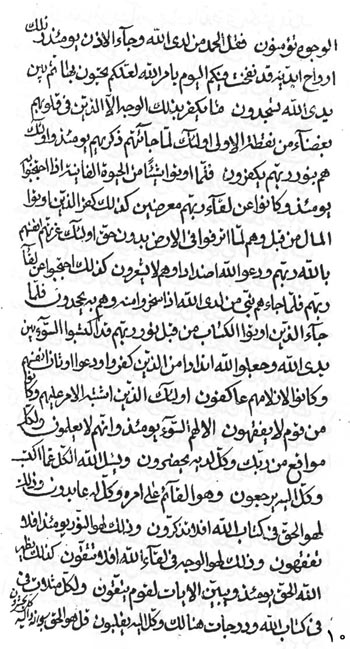 الوجوه تؤمنون فقل الحمد من لدى الله وجآء الاذن يومئذ وتلك
ارواح ابديته قد نفخت فيكم اليوم بامر الله لعلكم تحيون بها ثم بين
يدى الله لتسجدون فما يكفر بذلك الوجه الا الذين فى قلوبهم
بغضآء من نقطة الاولى اولئك لما جائتهم ذكر ربهم يومئذ واولئك
هم بنور ربهم يكفرون فلما اوتوا شيئا من الحيوة الفانية اذا احتجبوا
يومئذ وكانوا عن لقآء ربهم معرضين كذلك كفر الذين اوتوا
المال من قبل وهم لما اترفوا فى الارض بدون حق اولئك غرتهم انفسهم
بالله ربهم ودعوا الله اضدادا وهم لا يشعرون كذلك احتجبوا عن لقآء
ربهم فلما جاءهم نبى من لدى الله اذا سخروا منه وهم به يجحدون فلما
جآء الذين اوتوا الكتاب من قبل بنور ربهم قد اكتسبوا السوء بين
يدى الله وجعلوا لله اندادا من الذين كفروا ودعوا اوثان انفسهم
وكانوا لاصنامهم عاكفون اولئك الذين اشتبه الامر عليهم وكانوا
من قوم لا يفقهون الا لهم السوء يومئذ وانهم لا يعلمون ولكل
مواقع من ربك وكل لديه يحضرون ويسئل الله الكل عما اكتسب
وكل اليه يرجعون وهو القآئم على امره وكل له عابدون وذلك
لهو الحق فى كتاب الله افلا تذكرون وذلك لهو النور يومئذ افلا
تفقهون وذلك لهو الوجه فى لقآء الله افلا تتقون كذلك يظهر
الله الحق يومئذ ويبين الايات لقوم يتقون ولكل منازل فى
فى كتاب الله ودرجات هنالك وكل اليه يقلبون قل هو الحق
١٠